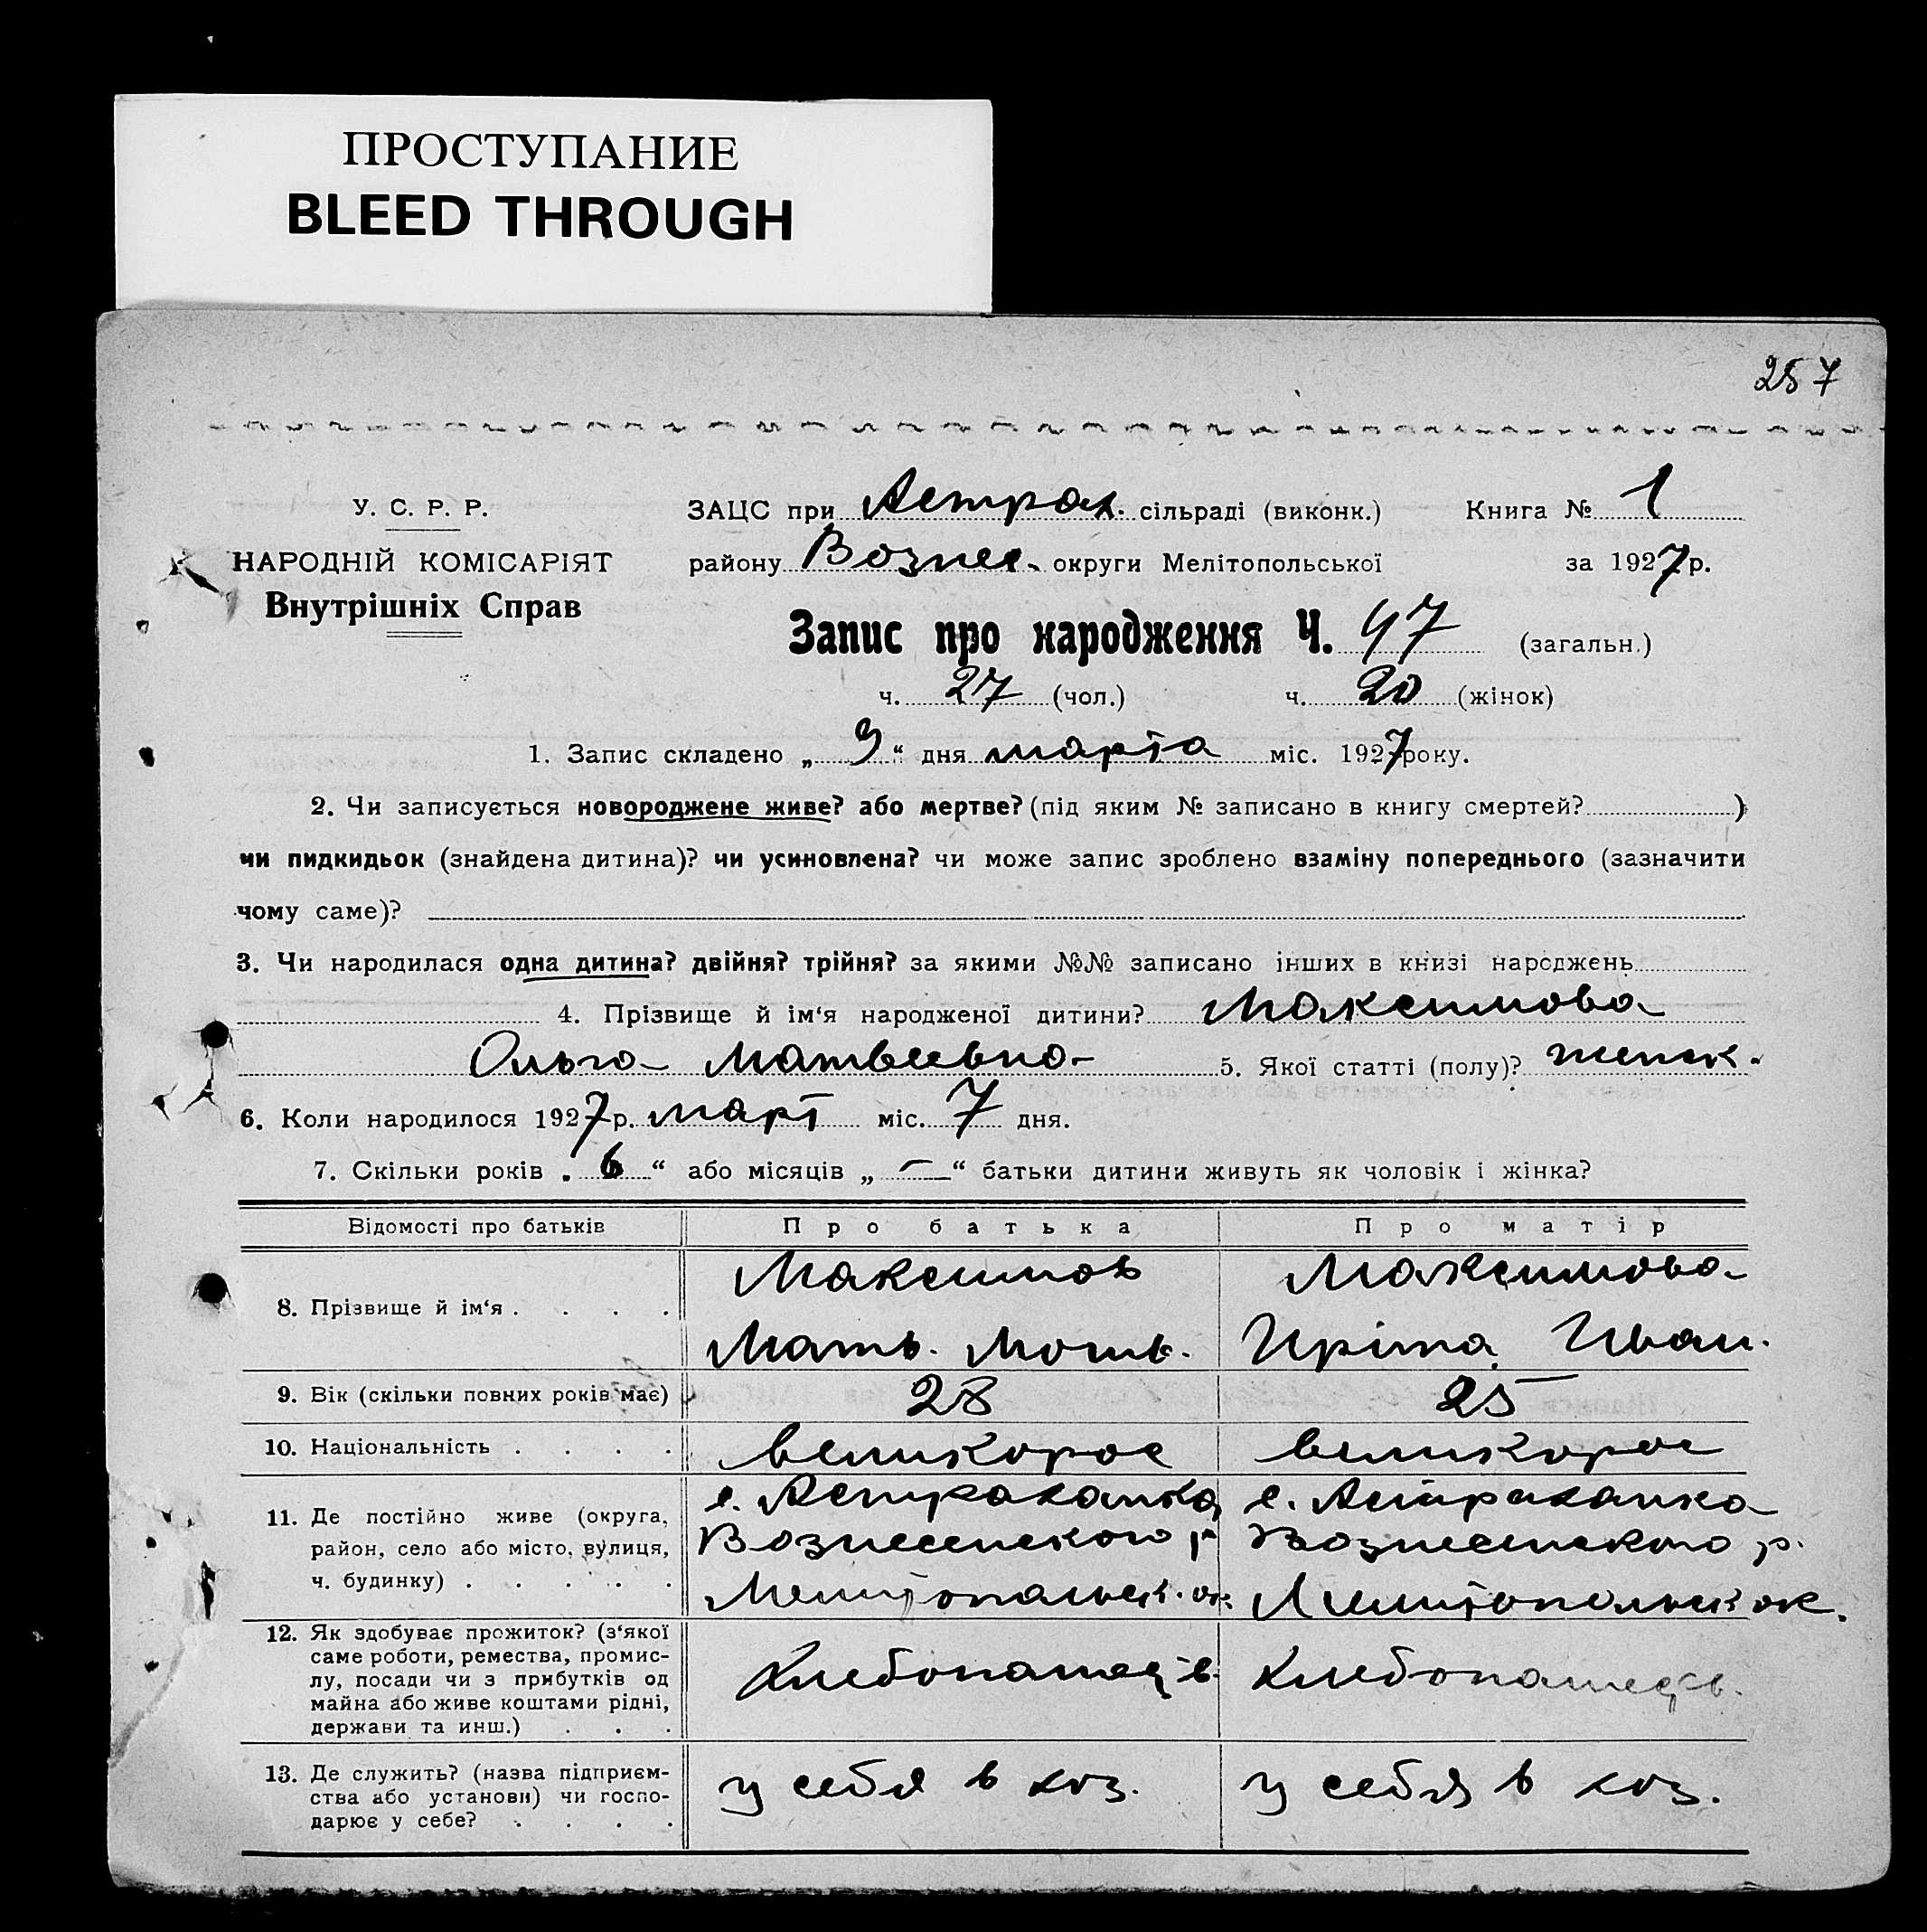 ПРОСТУПАНИЕ
BLEED THROUGH
257
У. С. Р. Р.
НАРОДНІЙ КОМІСАРІЯТ
Внутрішніх Справ
ЗАЦС при Астрах. сільраді (виконк.) Книга № 1
району Вознес. округи Мелітопольської за 1927 р.
Запис про народження Ч. 47 (загальн.)
ч. 27 (чол.) ч. 20 (жінок)
1. Запис складено „ 9 “ дня марта міс. 1927 року.
2. Чи записується новороджене живе? або мертве? (під яким № записано в книгу смертей? )
чи пидкидьок (знайдена дитина)? чи усиновлена? чи може запис зроблено взаміну попереднього (зазначити
чому саме)?
3. Чи народилася одна дитина? двійня? трійня? за якими №№ записано інших в книзі народжень
4. Прізвище й ім‘я народженої дитини? Максимова
Ольга Матвеевна 5. Якої статті (полу)? женск.
6. Коли народилося 1927 р. март міс. 7 дня.
7. Скільки років „ 6 “ або місяців „ — “ батьки дитини живуть як чоловік і жінка?
Відомості про батьків Про батька Про матір
8. Прізвище й ім‘я . . . . Максимов Максимова
Матв. Иван.
9. Вік (скільки повних років має) 28 25
10. Національність . . . . великорос великорос
11. Де постійно живе (округа, с. Астраханка с. Астраханка
район, село або місто, вулиця, Вознесенского р Вознесенского р.
ч. будинку) . . . . . Мелитопольск. ок. Мелитопольск ок.
12. Як здобуває прожиток? (з‘якої
саме роботи, ремества, промис-
лу, посади чи з прибутків од Хлебопашец. Хлебопашец.
майна або живе коштами рідні,
держави та инш.) . . .
13. Де служить? (назва підприєм-
ства або установи) чи госпо- у себя в хоз. у себя в хоз.
дарює у себе? . . . .